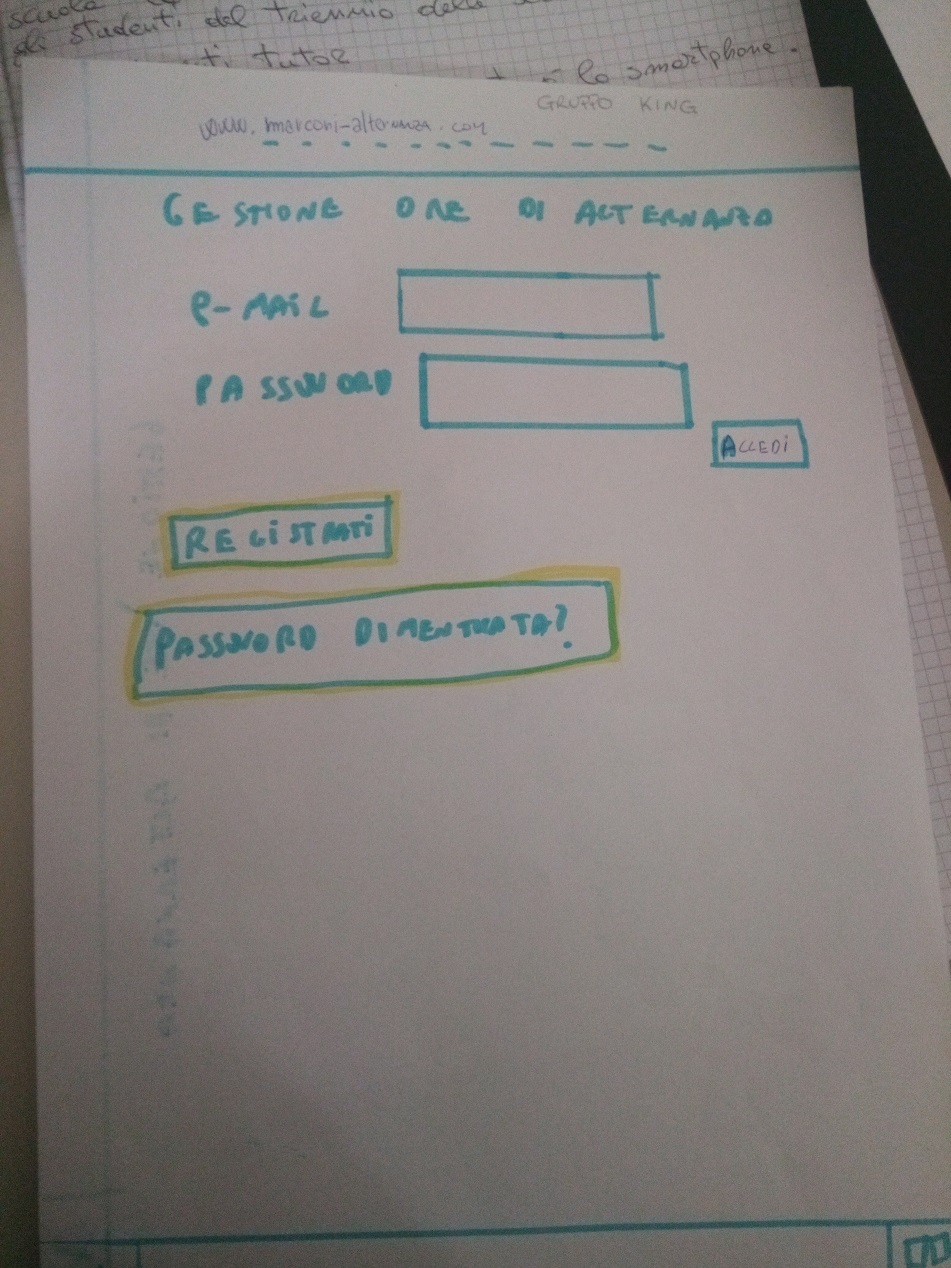 scuola
gli studenti del triennio della
tutor
lo smartphone.
GRUPPO KING
www.marconi-alternanza.com
GESTIONE ORE DI ALTERNANZA
e-MAiL
PASSWORD
ACCEDi
REGiSTRATi
PASSWORD DIMENTICATA?